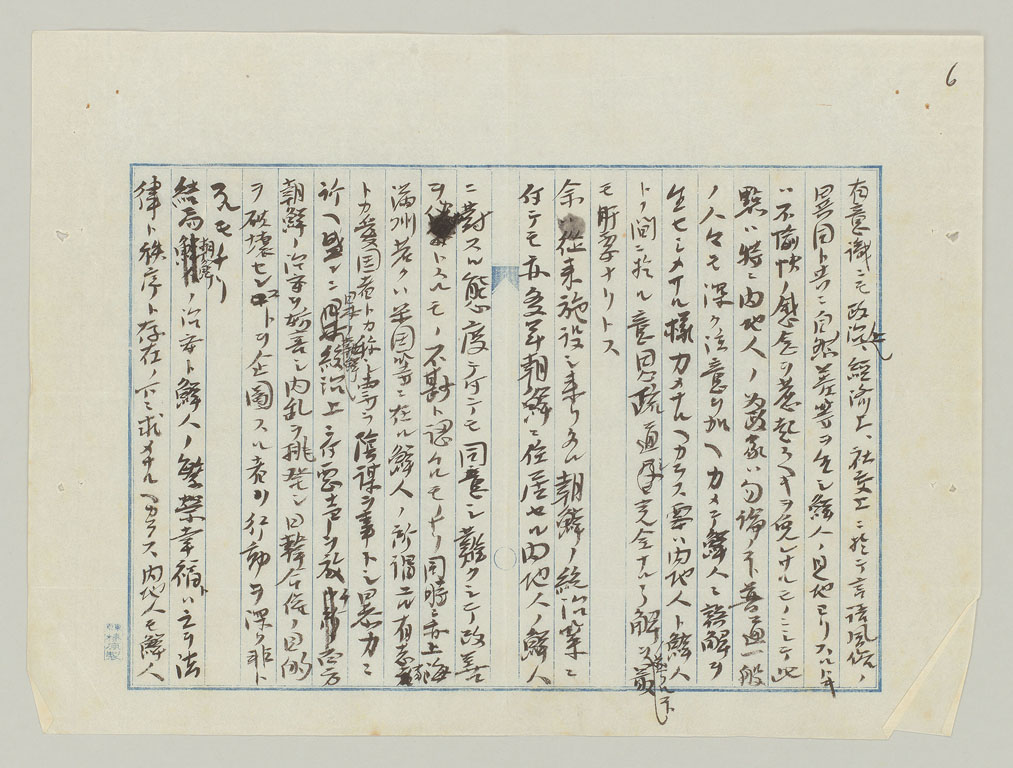 6
有意識ニモ政治上経済上、社交上ニ於テ言語風俗ノ
異同ト共ニ自然差等ヲ生シ鮮人ノ見地ヨリスルトキ
ハ不愉快ノ感念ヲ惹起スヘキヲ免レサルモノニシテ此
點ハ特ニ内地人ノ為政家ハ勿論ノ下普通一般
ノ人々モ深ク注意ヲ加ヘカメテ鮮人ニ誤解ヲ
生セシメサル様力メサルヘカラス要ハ内地人ト鮮人
トノ間ニ於ル意思疏通シ完全ナル了解ヲ遂クルヲ最
モ肝要ナリトス
余ハ従来施設シ来リタル朝鮮ノ統治策ニ
付テモ亦多年朝鮮ニ住居セル内地人ノ鮮人
ニ對スル態度ニ付テモ同意シ難クシテ改善
ヲ要トスルモノ不尠ト認ムルモノナリ同時ニ亦上海
満洲若クハ米国等ニ在ル鮮人ノ所謂有志
トカ愛国者トカ称シ専ラ陰謀ヲ事トシ暴力ニ
訴ヘ盛ンニ日本ノ統治上ニ付悪声ヲ放チ
朝鮮ノ治安ヲ妨害シ内乱ヲ挑発シ日韓合併ノ目的
ヲ破壊セントヲ企図スル者ノ行動ヲ深ク非ト
スルモノナリ
結局朝鮮ノ治安ト鮮人ノ繁榮幸福トハ之ヲ法
律ト秩序ト存在ノ下ニ求メサルヘカラス内地人モ鮮人